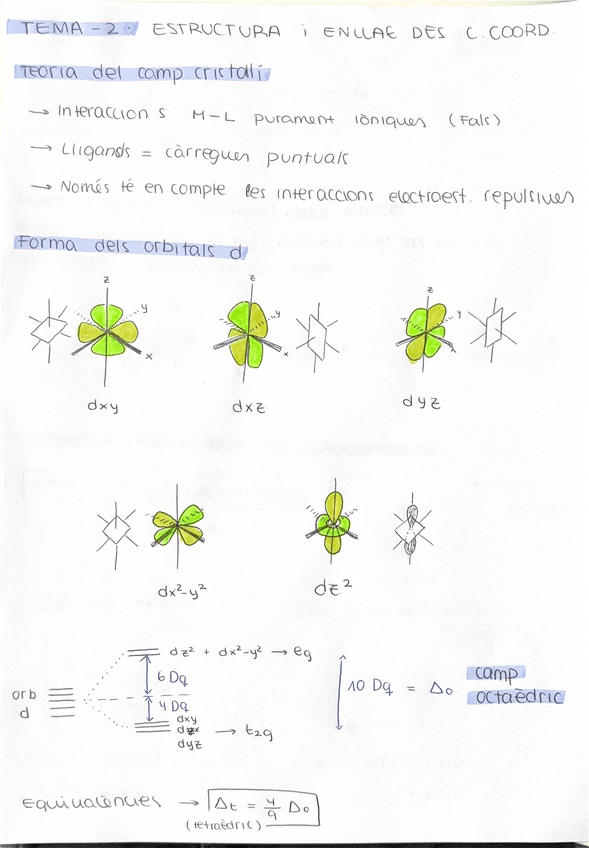 TEMA-2: ESTRUCTURA i ENLLAÇ DES C.COORD.
Teoria del camp cristal·lí
→ Interaccions M-L purament iòniques (Fals)
→ Lligands = càrregues puntuals
→ Només té en compte les interaccions electroest. repulsives
Forma dels orbitals d
z y x
z y x
z y x
dxy dxz dyz
dx²-y² dz²
dz² + dx²-y² → eg
6 Dq
orb d
4 Dq
dxy
dzx → t2g
dyz
10 Dq = Δo camp octaèdric
Equivalències → Δt = 4/9 Δo
(tetraèdric)